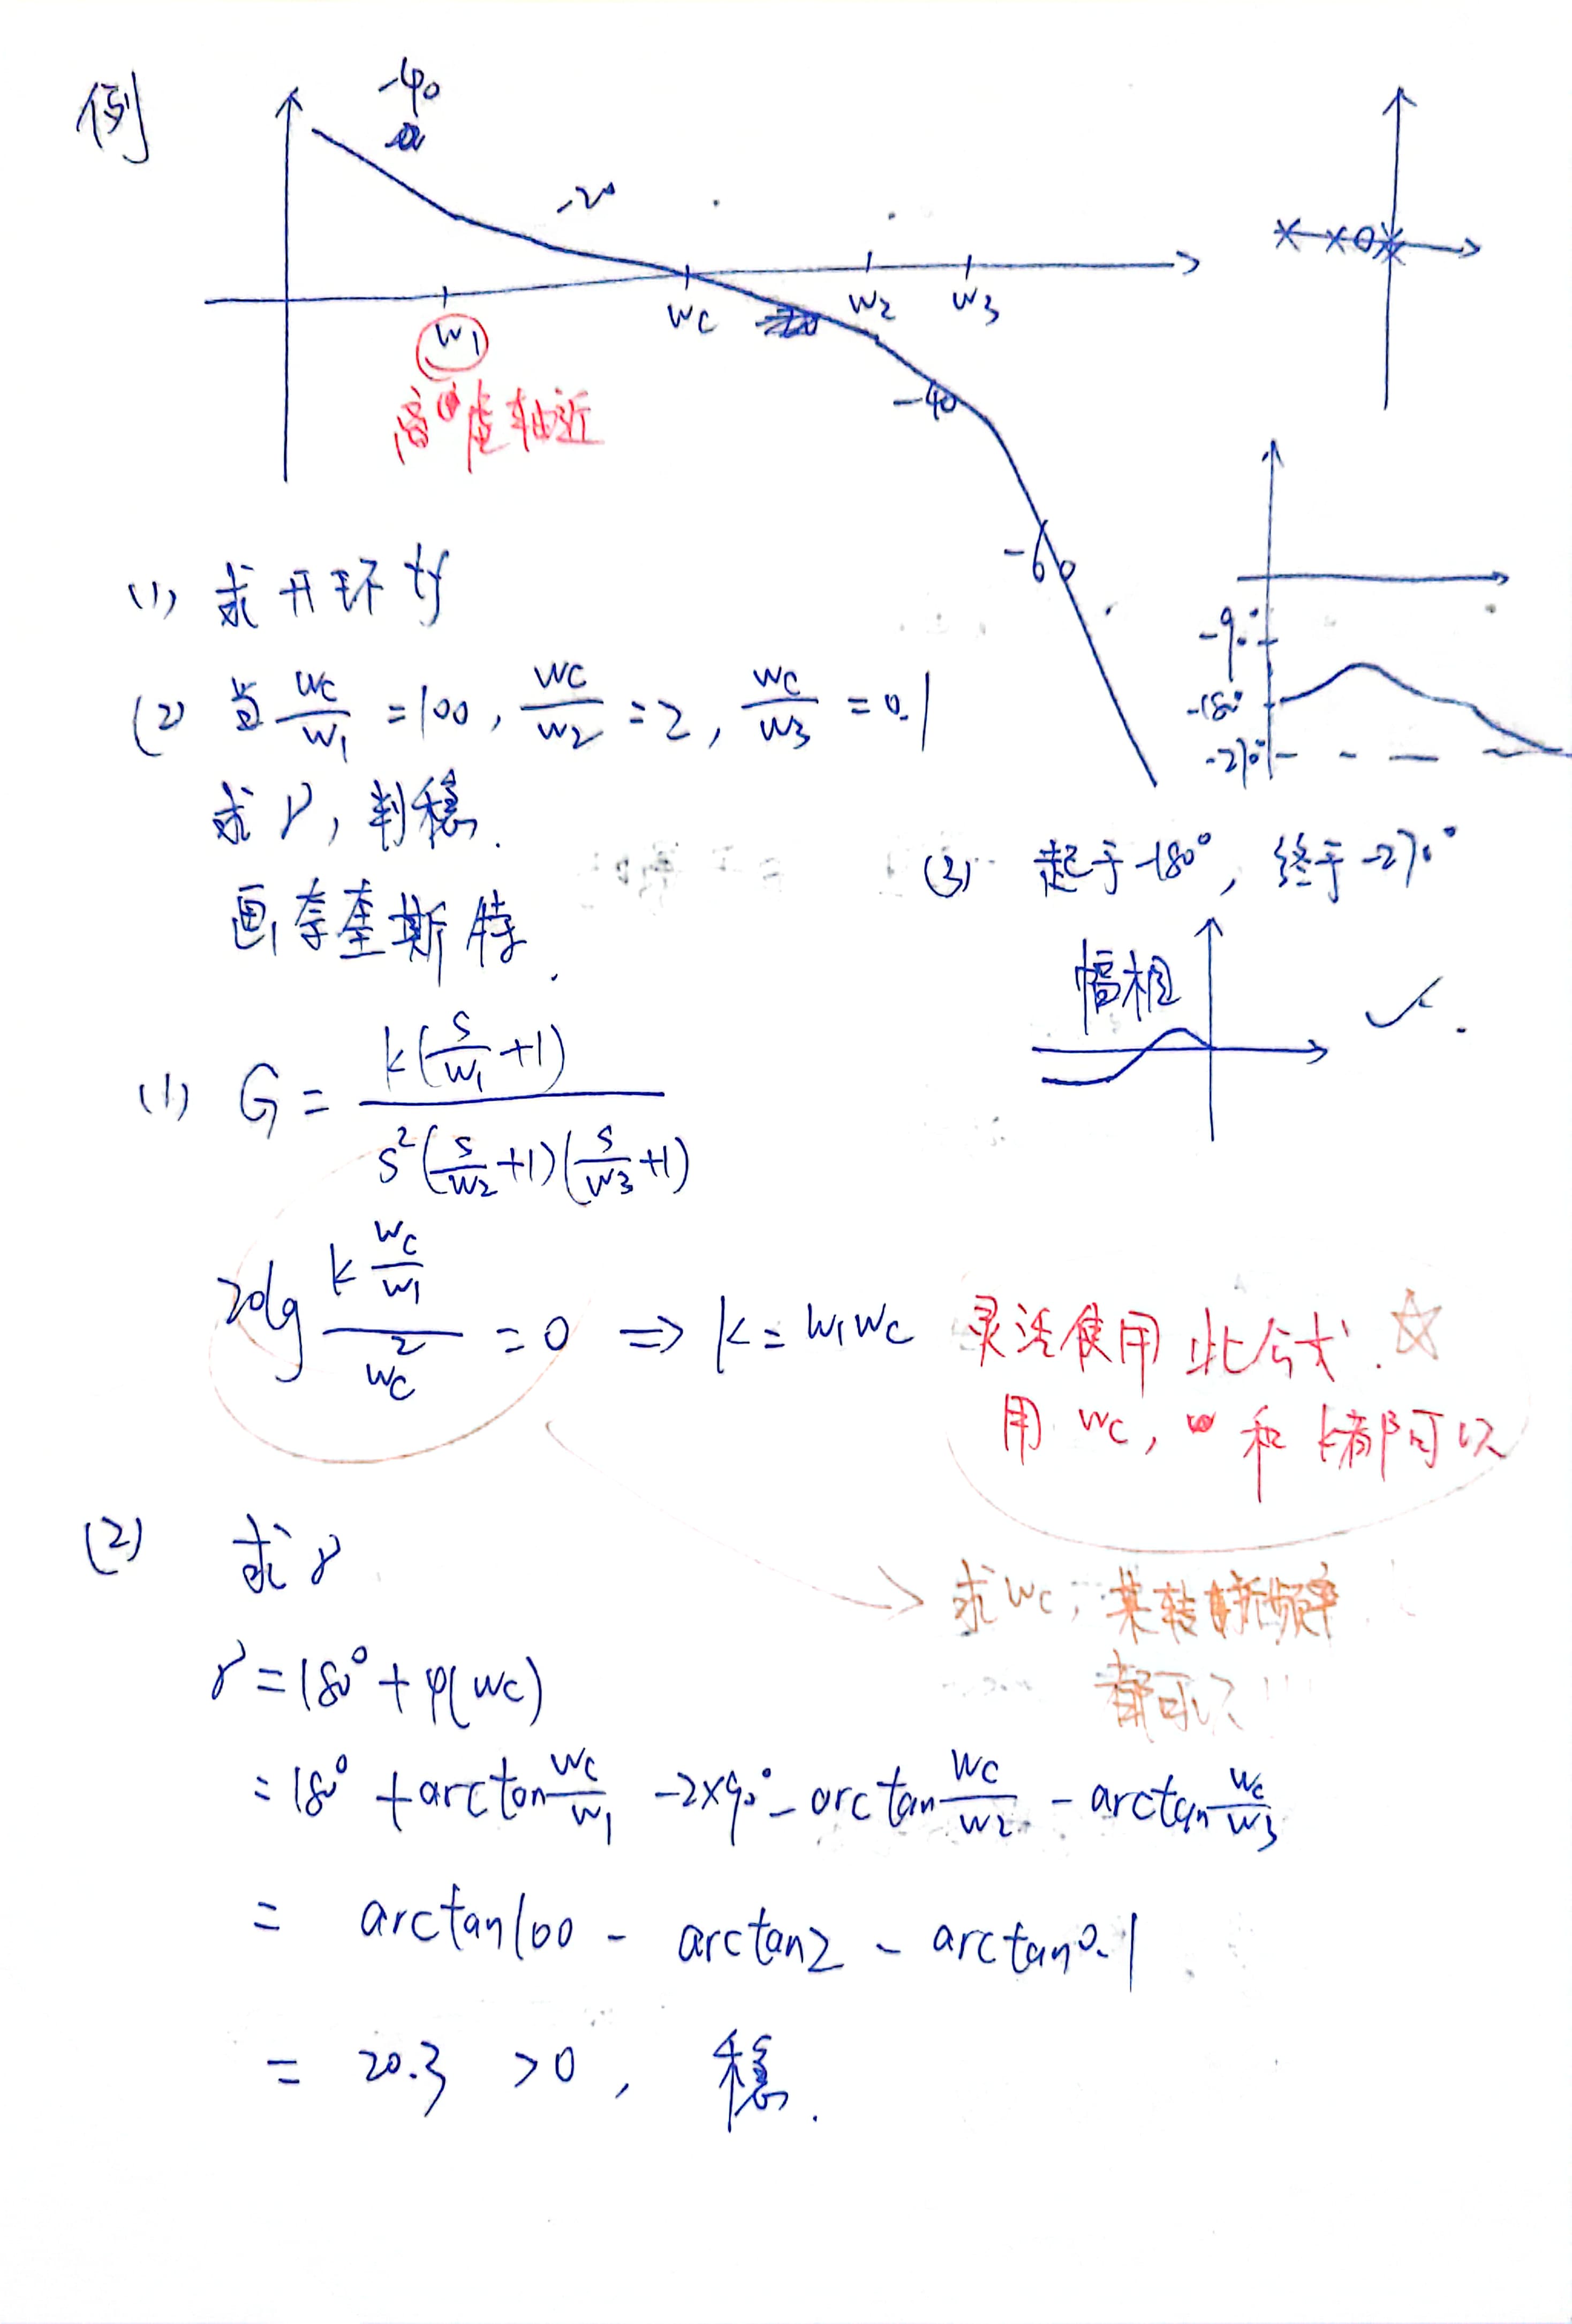 例
-40
-20
w₁ wc w₂ w₃
离虚轴近
-40
-60
(1) 求开环tf
(2) 当 wc/w₁ = 100, wc/w₂ = 2, wc/w₃ = 0.1
求γ, 判稳.
画奈奎斯特.
-90°
-180°
-270°
(3) 起于-180°, 终于-270°
幅相 ✓.
(1) G = k(s/w₁ + 1) / s²(s/w₂ + 1)(s/w₃ + 1)
20lg (k wc/w₁) / wc² = 0 ⇒ k = w₁wc 灵活使用此公式. ☆
用 wc, w 和 k都可以
(2) 求γ
求wc, 某转折频率
都可以
γ = 180° + φ(wc)
= 180° + arctan wc/w₁ - 2×90° - arctan wc/w₂ - arctan wc/w₃
= arctan100 - arctan2 - arctan0.1
= 20.3 > 0, 稳.